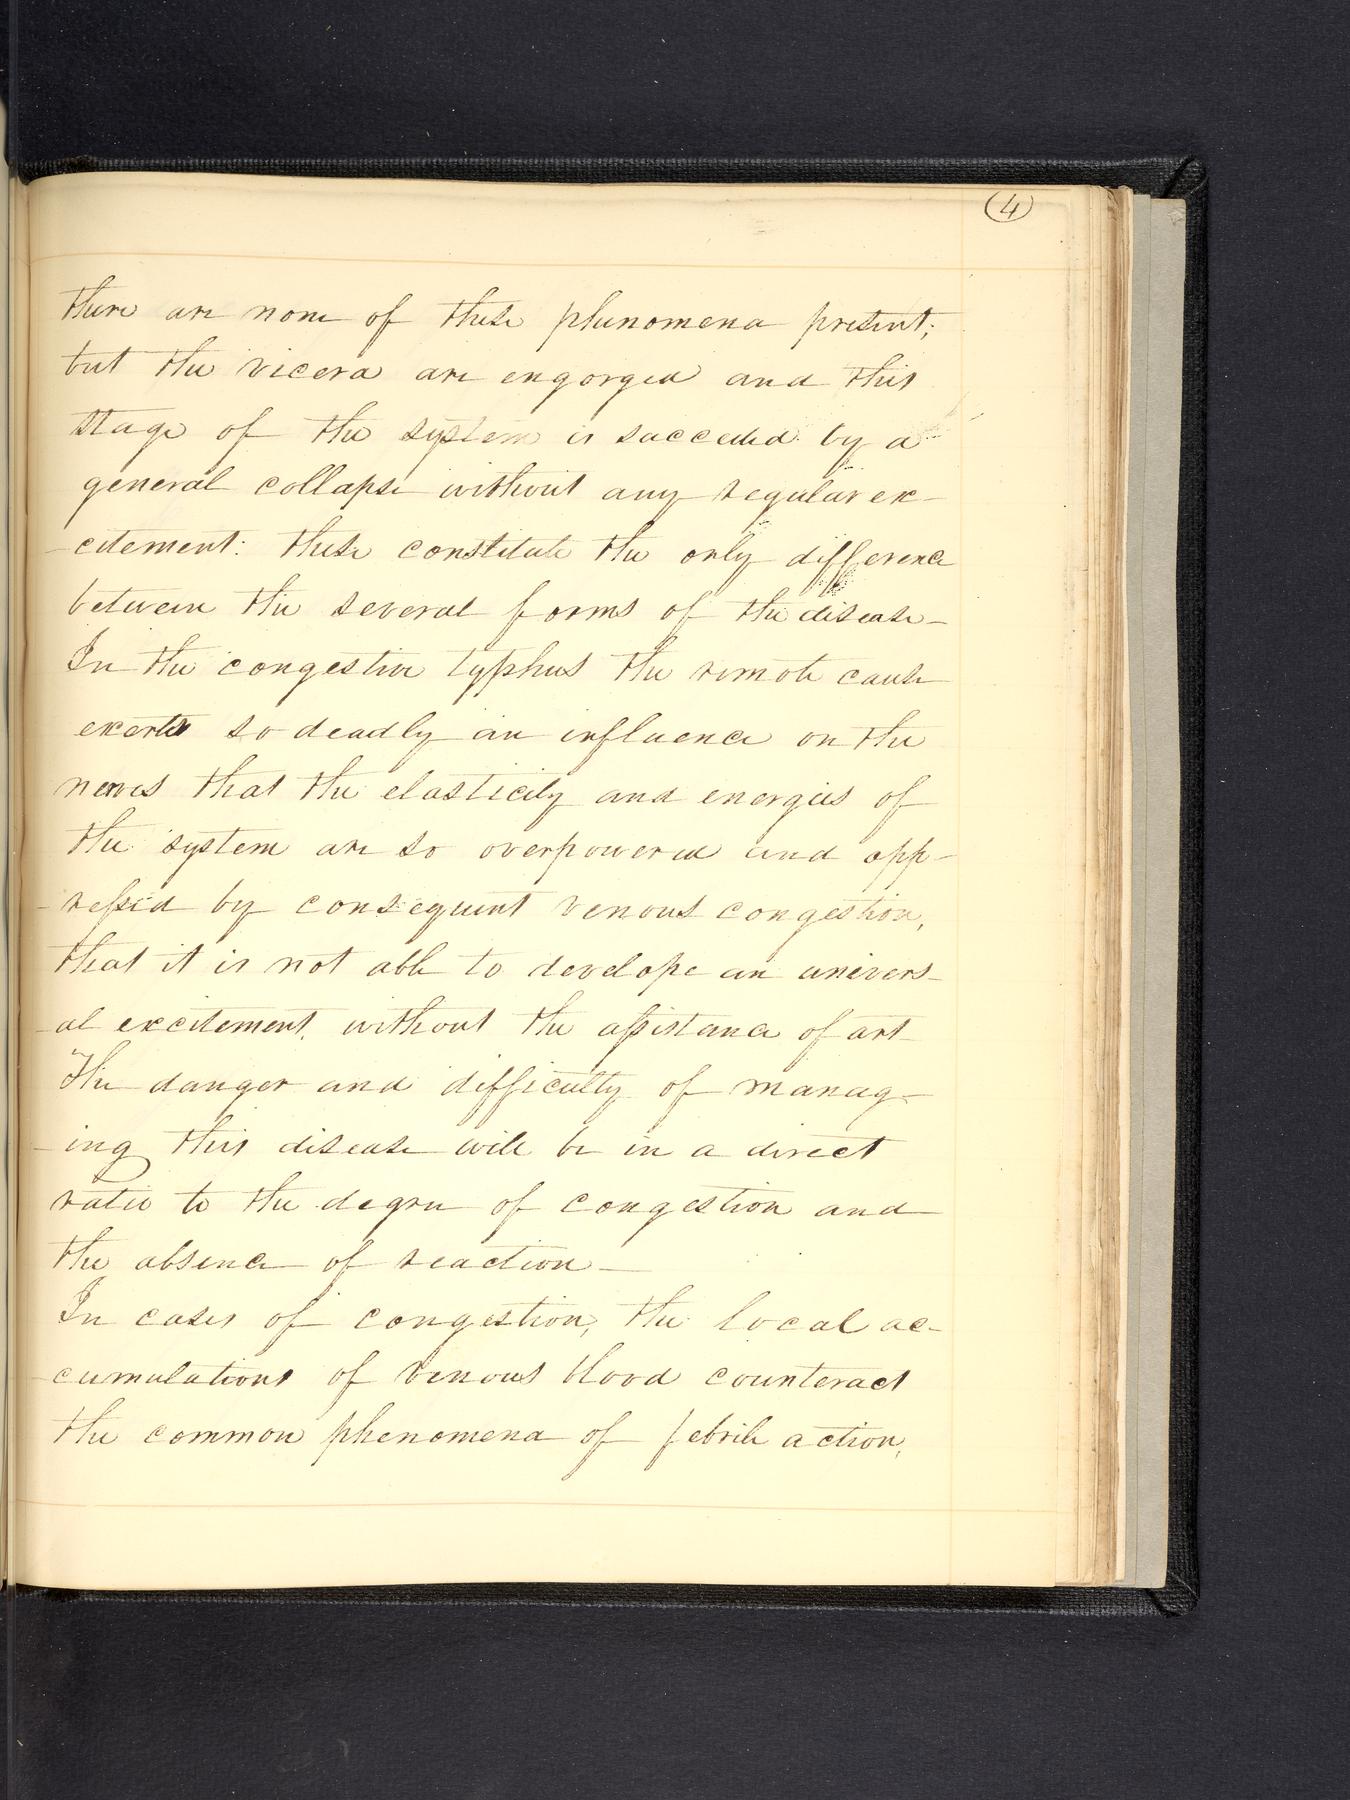 4
there are none of these phenomena present;
but the vicera are engorged and this
stage of the system is succeeded by a
general collapse without any regular ex-
-citement: these constitute the only difference
between the several forms of the disease-
In the congestive typhus the remote cause
exerts so deadly an influence on the
nerves that the elasticity and energies of
the system are so overpowered and opp-
-ressed by consequent venous congestion,
that it is not able to develope an univers-
-al excitement, without the assistance of art
The danger and difficulty of manag-
-ing this disease will be in a direct
ratio to the degree of congestion and
the absence of reaction-
In cases of congestion, the local ac-
-cumulations of venous blood counteract
the common phenomena of febrile action,